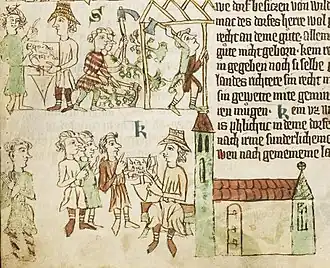 S
we dorf besitzen von wilder
mac des dorfes herre wol
recht an deme gute, allein
gute nicht geborn. kein
in gegeben noch si selbe
landes richtere sin recht
sin gewette mite
ren mugen. K ein uz
is phlichtic in deme dorfe
nach irme sunderlichem
wen nach gemeneme la
K